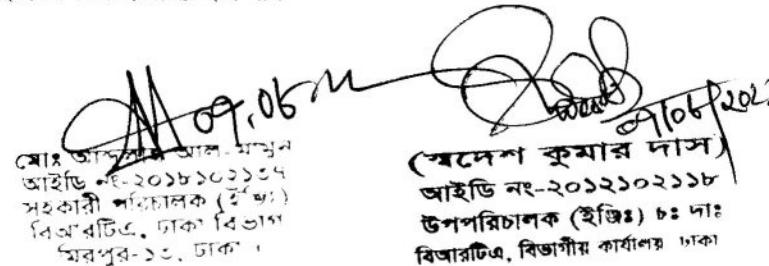 09.06
09/06/202
মোঃ আল-মামুন
আইডি নং-২০১৮১০২১৩৭
সহকারী পরিচালক (ইঞ্জিঃ)
বিআরটিএ, ঢাকা বিভাগ
মিরপুর-১৩, ঢাকা ।
(স্বদেশ কুমার দাস)
আইডি নং-২০১২১০২১১৮
উপপরিচালক (ইঞ্জিঃ) চঃ দাঃ
বিআরটিএ, বিভাগীয় কার্যালয় ঢাকা